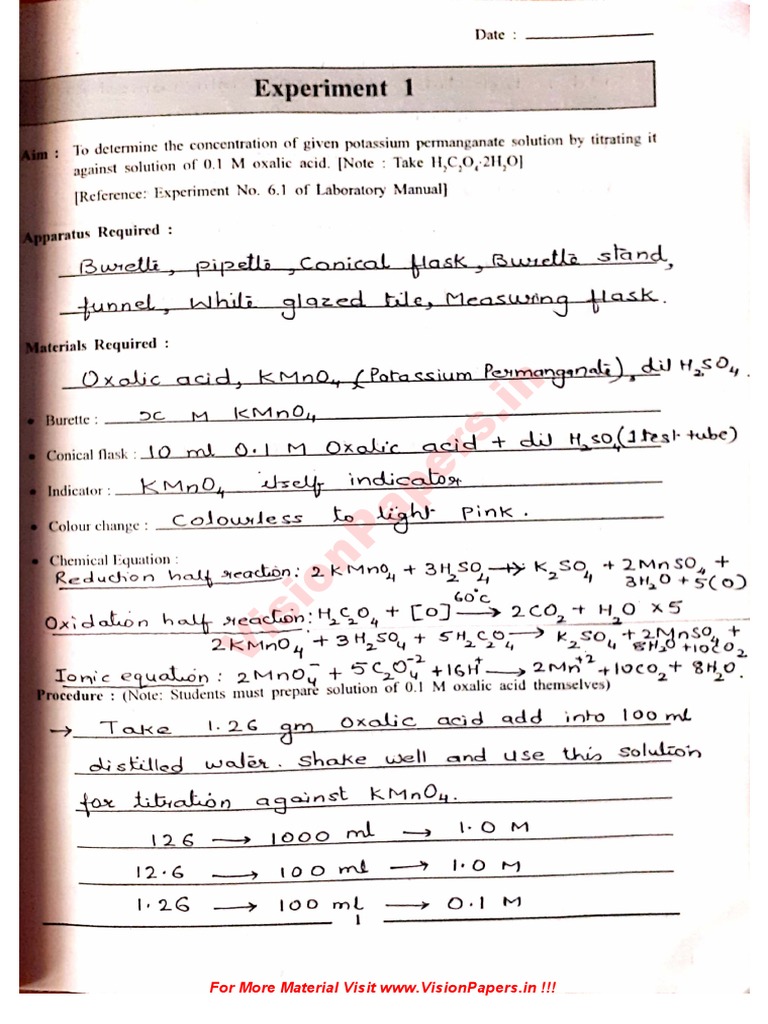 Date : ____________
Experiment 1
Aim : To determine the concentration of given potassium permanganate solution by titrating it
against solution of 0.1 M oxalic acid. [Note : Take H₂C₂O₄·2H₂O]
[Reference: Experiment No. 6.1 of Laboratory Manual]
Apparatus Required :
Burette, pipette, Conical flask, Burette stand,
funnel, White glazed tile, Measuring flask.
Materials Required :
Oxalic acid, KMnO₄ (Potassium Permanganate), dil H₂SO₄.
• Burette : x M KMnO₄
• Conical flask : 10 ml 0.1 M Oxalic acid + dil H₂SO₄ (1 test tube)
• Indicator : KMnO₄ itself indicator
• Colour change : Colourless to light pink.
• Chemical Equation :
Reduction half reaction: 2KMnO₄ + 3H₂SO₄ → K₂SO₄ + 2MnSO₄ +
3H₂O + 5(O)
Oxidation half reaction: H₂C₂O₄ + [O] 60°C → 2CO₂ + H₂O ×5
2KMnO₄ + 3H₂SO₄ + 5H₂C₂O₄ → K₂SO₄ + 2MnSO₄ +
8H₂O + 10CO₂
Ionic equation : 2MnO₄⁻ + 5C₂O₄⁻² + 16H⁺ → 2Mn⁺² + 10CO₂ + 8H₂O.
Procedure : (Note: Students must prepare solution of 0.1 M oxalic acid themselves)
→ Take 1.26 gm Oxalic acid add into 100 ml
distilled water. Shake well and use this solution
for titration against KMnO₄.
126 → 1000 ml → 1.0 M
12.6 → 100 ml → 1.0 M
1.26 → 100 ml → 0.1 M
1
VisionPapers.in
For More Material Visit www.VisionPapers.in !!!